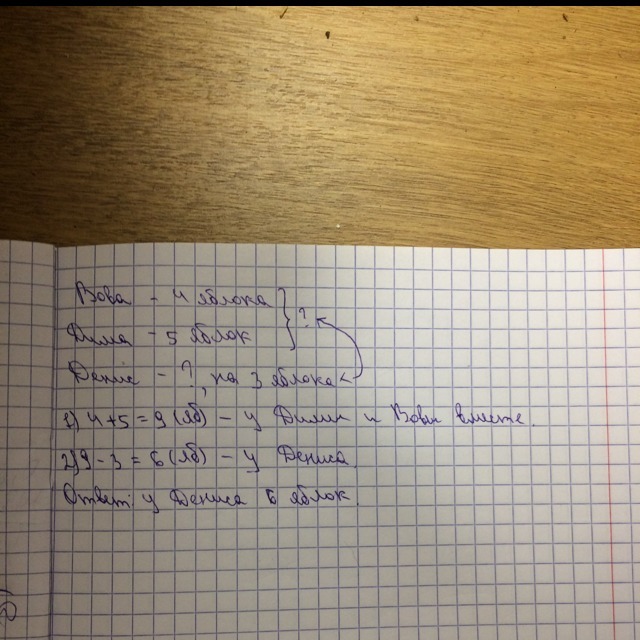 Вова - 4 яблока } ?
Дима - 5 яблок
Денис - ?, на 3 яблока <
1) 4+5=9 (яб) - у Димы и Вовы вместе.
2) 9-3=6 (яб) - у Дениса.
Ответ: у Дениса 6 яблок.